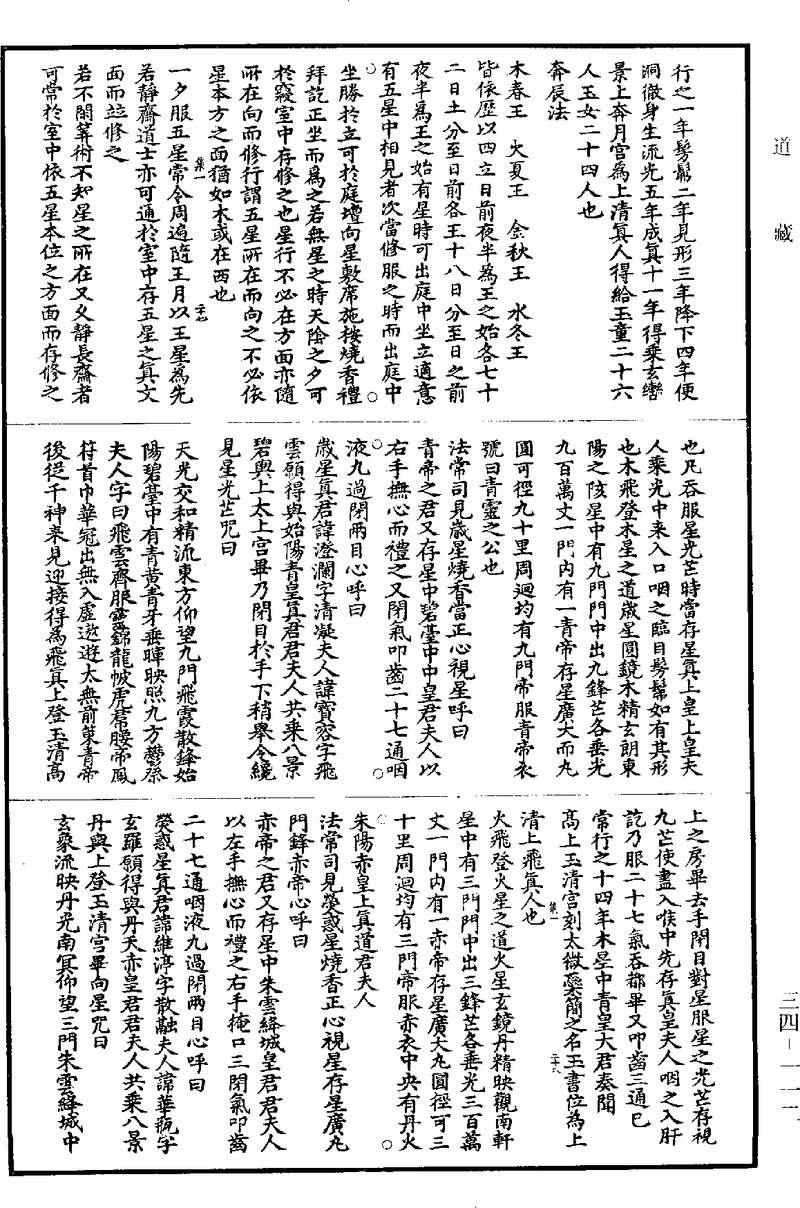 道藏
行之一年髣髴二年見形三年降下四年便
洞徹身生流光五年成真十一年得乘玄轡
景上奔月宮為上清真人得給玉童二十六
人玉女二十四人也
奔辰法
木春王　火夏王　金秋王　水冬王
皆依歷以四立日前夜半為王之始各七十
二日土分至日前各王十八日分至日之前
夜半為王之始有星時可出庭中坐立適意
有五星中相見者次當修服之時而出庭中
坐勝於立可於庭壇向星敷席施按燒香禮
拜訖正坐而為之若無星之時天陰之夕可
於寢室中存修之也星行不必在方面亦隨
所在向而修行謂五星所在而向之不必依
星本方之面猶如木或在西也
集一
一夕服五星常令周遍隨王月以王星為先
若靜齋道士亦可通於室中存五星之真文
面而竝修之
若不閑筭術不知星之所在又久靜長齋者
可常於室中依五星本位之方面而存修之
也凡吞服星光芒時當存星真上皇上皇夫
人乘光中來入口咽之臨目髣髴如有其形
也木飛登木星之道歲星圓鏡木精玄朗東
陽之陔星中有九門門中出九鋒芒各垂光
九百萬丈一門內有一青帝存星廣大而九
圓可徑九十里周迴均有九門帝服青帝衣
號曰青靈之公也
法常司見歲星燒香當正心視星呼曰
青帝之君又存星中碧臺中中皇君夫人以
右手撫心而禮之又閉氣叩齒二十七通咽
液九過閉兩目心呼曰
歲星真君諱澄瀾字清凝夫人諱寶容字飛
雲願得與始陽青皇真君君夫人共乘八景
碧輿上太上宮畢乃開目於手下稍舉令纔
見星光芒咒曰
天光交和精流東方仰望九門飛霞散鋒始
陽碧臺中有青黃青牙垂暉映照九方鬱蔡
夫人字曰飛雲齊服靈錦龍帔虎帬腰帶鳳
符首巾華冠出無入虛遨遊太無前策青帝
後從千神來見迎接得為飛真上登玉清高
上之房畢去手閉目對星服星之光芒存視
九芒使盡入喉中先存真皇夫人咽之入肝
訖乃服二十七氣吞都畢又叩齒三通已
常行之十四年木星中青皇大君奏聞
高上玉清宮刻太微藥簡之名玉書位為上
清上飛真人也
集一
火飛登火星之道火星玄鏡丹精映觀南軒
星中有三門門中出三鋒芒各垂光三百萬
丈一門內有一赤帝存星廣大丸圓徑可三
十里周迴均有三門帝服赤衣中央有丹火
朱陽赤皇上真道君夫人
法常司見熒惑星燒香正心視星存星廣丸
門鋒赤帝心呼曰
赤帝之君又存星中朱雲絳城皇君君夫人
以左手撫心而禮之右手掩口三閉氣叩齒
二十七通咽液九過閉兩目心呼曰
熒惑星真君諱維渟字散融夫人諱華瓶字
玄羅願得與丹天赤皇君君夫人共乘八景
丹輿上登玉清宮畢向星咒曰
玄象流映丹光南冥仰望三門朱雲絳城中
三四－一一一